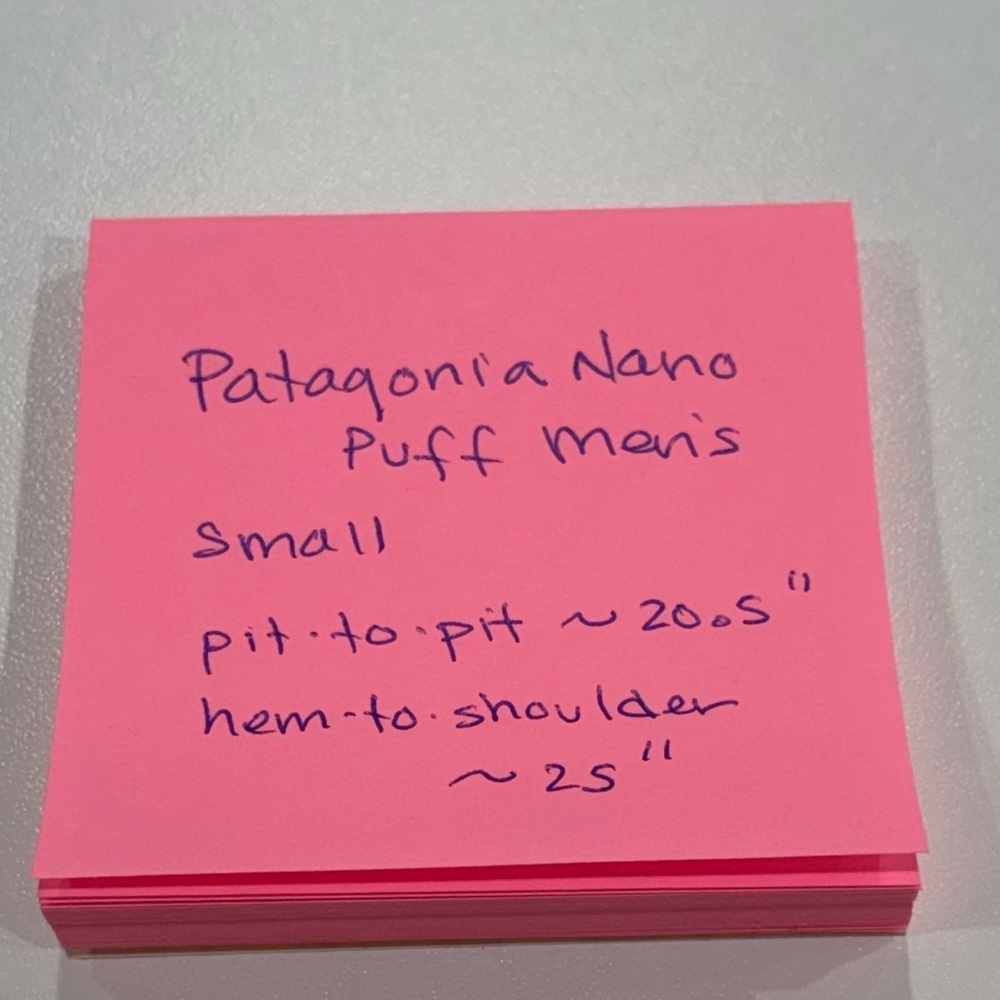 Patagonia Nano
Puff men's
small
pit-to-pit ~ 20.5"
hem-to-shoulder
~ 25"